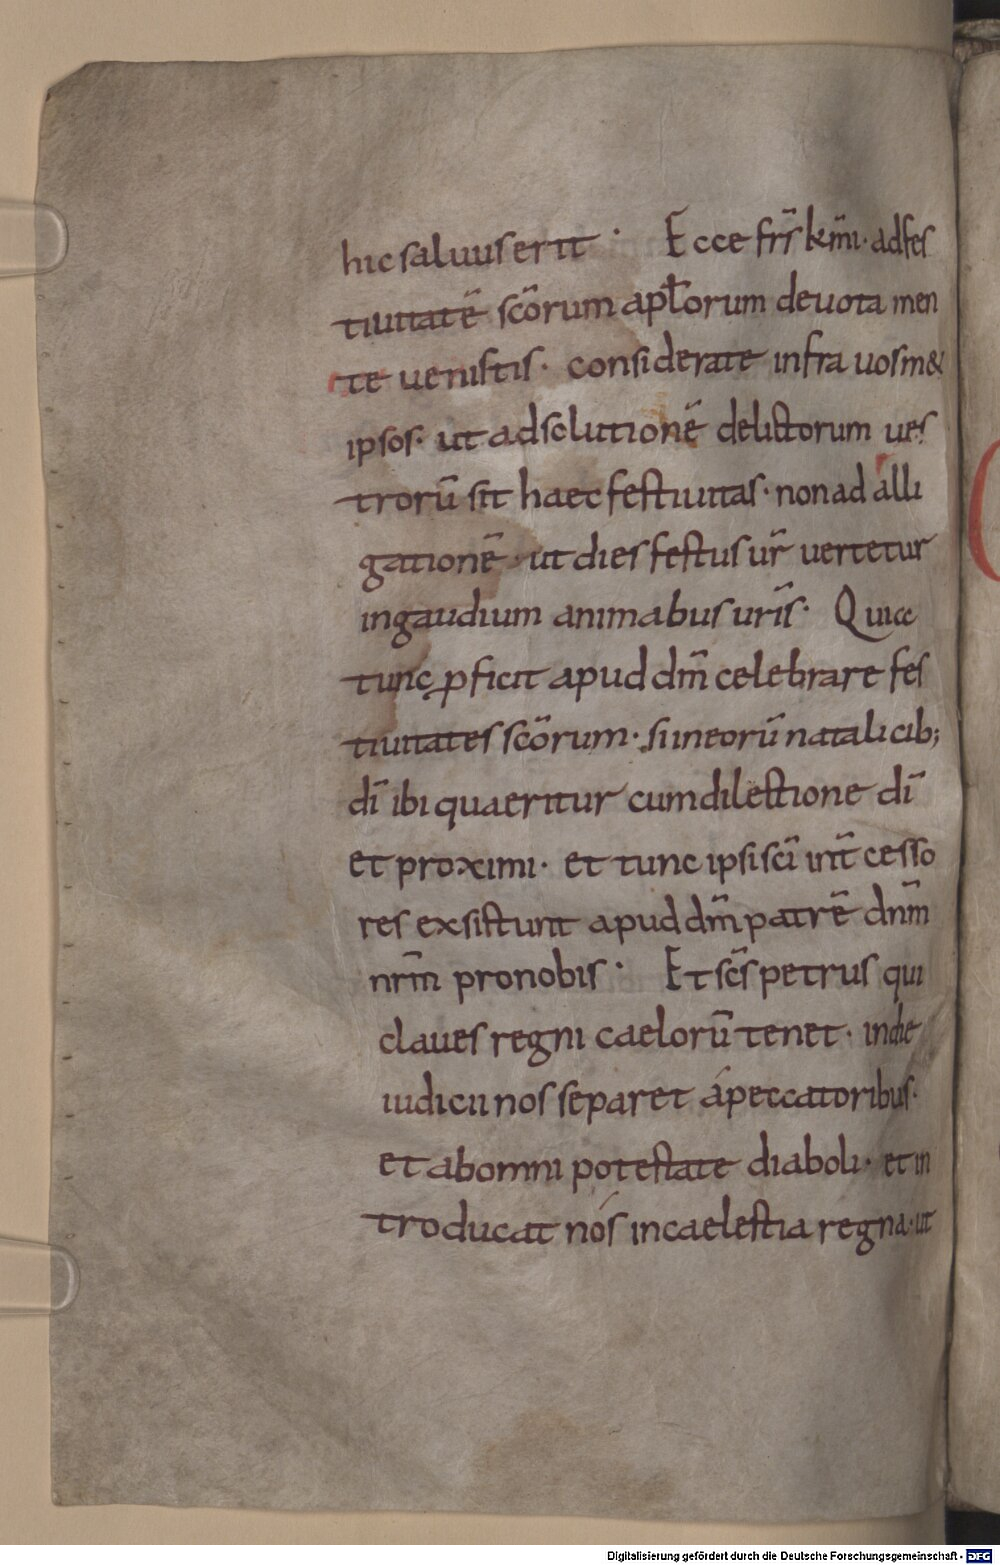 hic saluus erit · Ecce frs̄ km̄i · ad fes
tiuitatē scōrum aptłorum deuota men
te uenistis · considerate infra uos m&
ipsos · ut ad solutionē delictorum ues
trorū sit haec festiuitas · non ad alli
gationē · ut dies festus ur̄ uertetur
in gaudium animabus urīs · Quia
tunc ꝓficit apud dm̄ celebrare fes
tiuitates scōrum · si in eorū natalicib;
dī ibi quaeritur cum dilectione dī
et proximi · et tunc ipsi scī int̄cesso
res exsistunt apud dm̄ patrē dnm̄
nrm̄ pro nobis · Et scs̄ petrus qui
claues regni caelorū tenet · in die
iudicii nos separet á peccatoribus ·
et ab omni potestate diaboli · et in
troducat nós in caelestia regna · ut
Digitalisierung gefördert durch die Deutsche Forschungsgemeinschaft - DFG